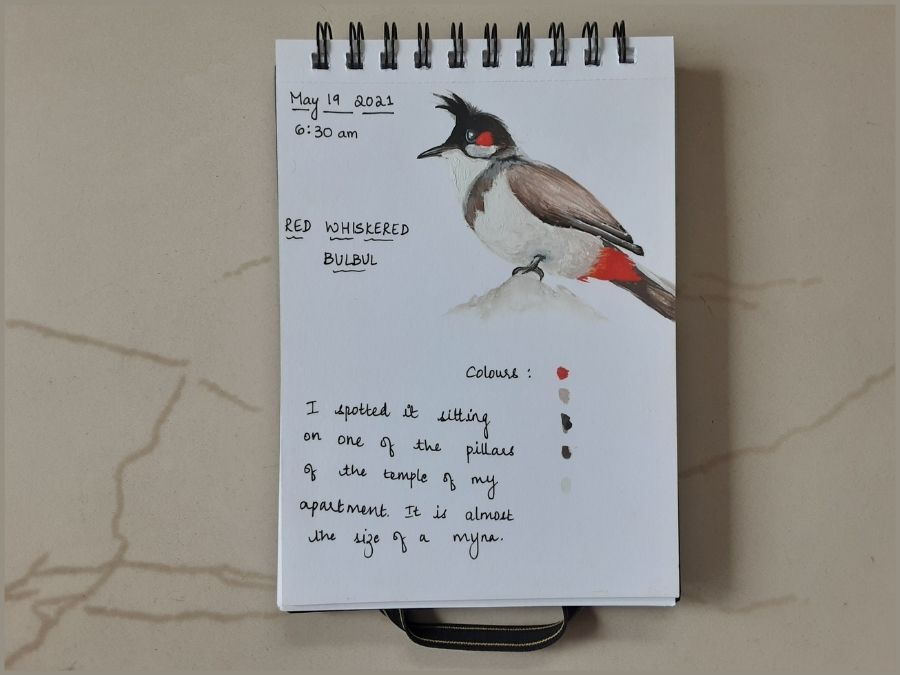 May 19 2021
6:30 am
RED WHISKERED
BULBUL
Colours :
I spotted it sitting
on one of the pillars
of the temple of my
apartment. It is almost
the size of a myna.